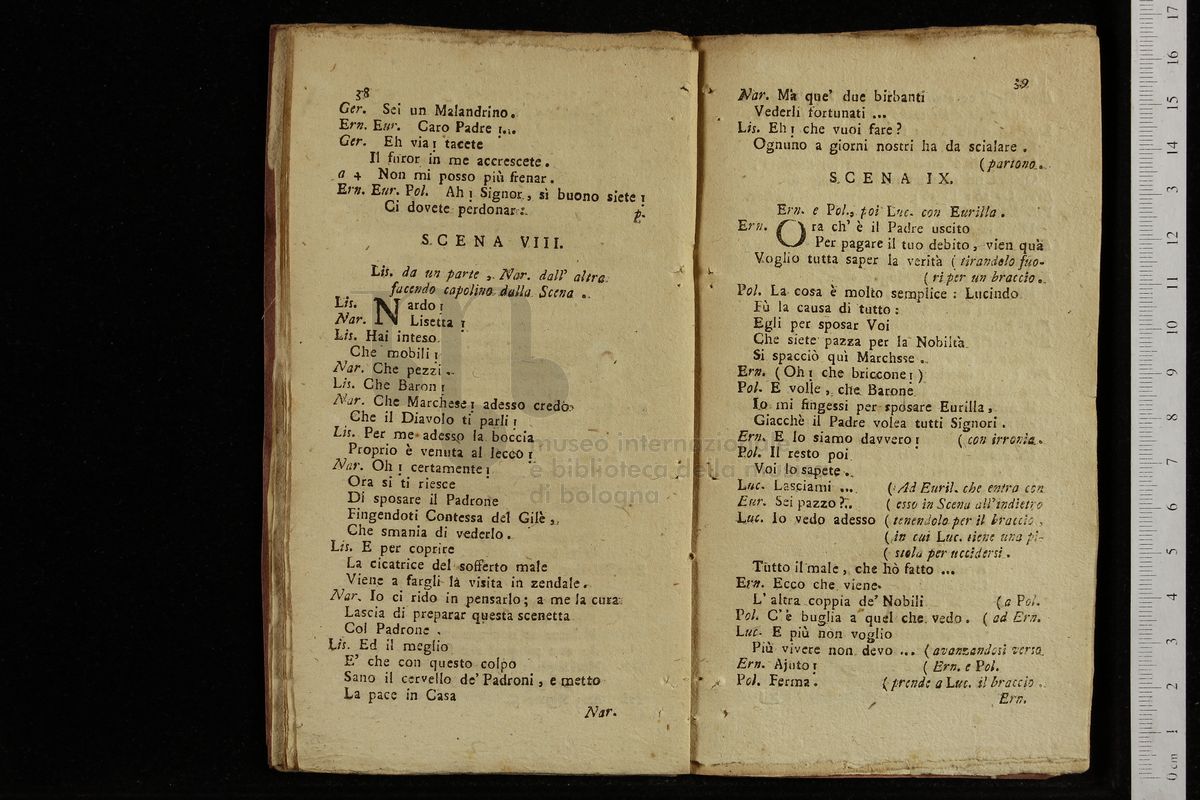 38
Ger. Sei un Malandrino.
Ern. Eur. Caro Padre !...
Ger. Eh via! tacete
Il furor in me accrescete.
a 4 Non mi posso più frenar.
Ern. Eur. Pol. Ah! Signor, sì buono siete!
Ci dovete perdonar.
p.
SCENA VIII.
Lis. da un parte, Nar. dall' altra
facendo capolino dalla Scena.
Lis. Nardo!
Nar. Lisetta!
Lis. Hai inteso
Che mobili!
Nar. Che pezzi..
Lis. Che Baron!
Nar. Che Marchese! adesso credo
Che il Diavolo ti parli!
Lis. Per me adesso la boccia
Proprio è venuta al lecco!
Nar. Oh! certamente!
Ora si ti riesce
Di sposare il Padrone
Fingendoti Contessa del Gilè,
Che smania di vederlo.
Lis. E per coprire
La cicatrice del sofferto male
Viene a fargli la visita in zendale.
Nar. Io ci rido in pensarlo; a me la cura
Lascia di preparar questa scenetta
Col Padrone.
Lis. Ed il meglio
E' che con questo colpo
Sano il cervello de' Padroni, e metto
La pace in Casa
Nar.
39
Nar. Ma que' due birbanti
Vederli fortunati ...
Lis. Eh! che vuoi fare?
Ognuno a giorni nostri ha da scialare.
(partono.
SCENA IX.
Ern. e Pol., poi Luc. con Eurilla.
Ern. Ora ch' è il Padre uscito
Per pagare il tuo debito, vien quà
Voglio tutta saper la verità (tirandolo fuo-
(ri per un braccio.
Pol. La cosa è molto semplice: Lucindo
Fù la causa di tutto:
Egli per sposar Voi
Che siete pazza per la Nobiltà
Si spacciò quì Marchsse.
Ern. (Oh! che briccone!)
Pol. E volle, che Barone
Io mi fingessi per sposare Eurilla,
Giacchè il Padre volea tutti Signori.
Ern. E lo siamo davvero! (con irronia.
Pol. Il resto poi
Voi lo sapete.
Luc. Lasciami ... (Ad Euril. che entra con
Eur. Sei pazzo?.. (esso in Scena all'indietro
Luc. Io vedo adesso (tenendolo per il braccio,
(in cui Luc. tiene una pi-
(stola per uccidersi.
Tutto il male, che hò fatto ...
Ern. Ecco che viene
L' altra coppia de' Nobili (a Pol.
Pol. C'è buglia a quel che vedo. (ad Ern.
Luc. E più non voglio
Più vivere non devo ... (avanzandosi verso
Ern. Ajuto! (Ern. e Pol.
Pol. Ferma. (prende a Luc. il braccio.
Ern.
museo internazionale
e biblioteca della musica
di bologna
0 cm 1 2 3 4 5 6 7 8 9 10 11 12 13 14 15 16 17